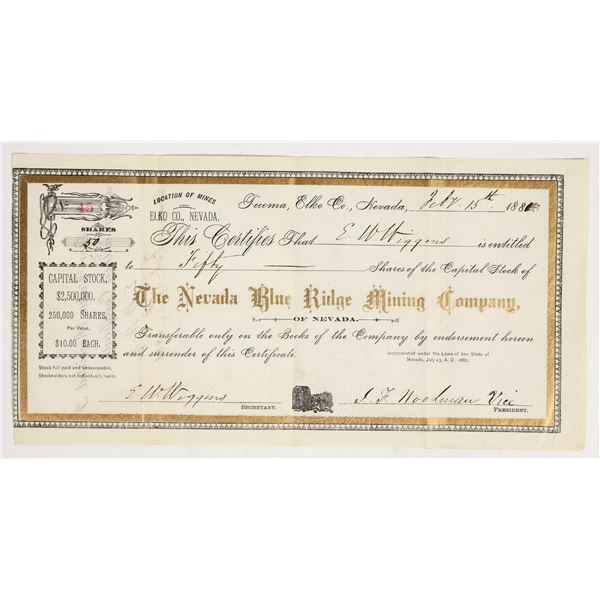 No. 45
SHARES
50
LOCATION OF MINES
ELKO CO., NEVADA.
Tecoma, Elko Co., Nevada, 15th 188
This Certifies That E. W. Wiggins is entitled
to Fifty Shares of the Capital Stock of
The Nevada Blue Ridge Mining Company,
OF NEVADA.
Transferable only on the Books of the Company by endorsement hereon
and surrender of this Certificate.
Incorporated under the Laws of the State of
Nevada, July 23, A. D. 1880.
CAPITAL STOCK,
$2,500,000.
250,000 SHARES,
Par Value,
$10.00 EACH.
Stock full paid and unassessable,
Stockholders not individually liable.
E. W. Wiggins
SECRETARY.
J. F. Woodman Vice
PRESIDENT.